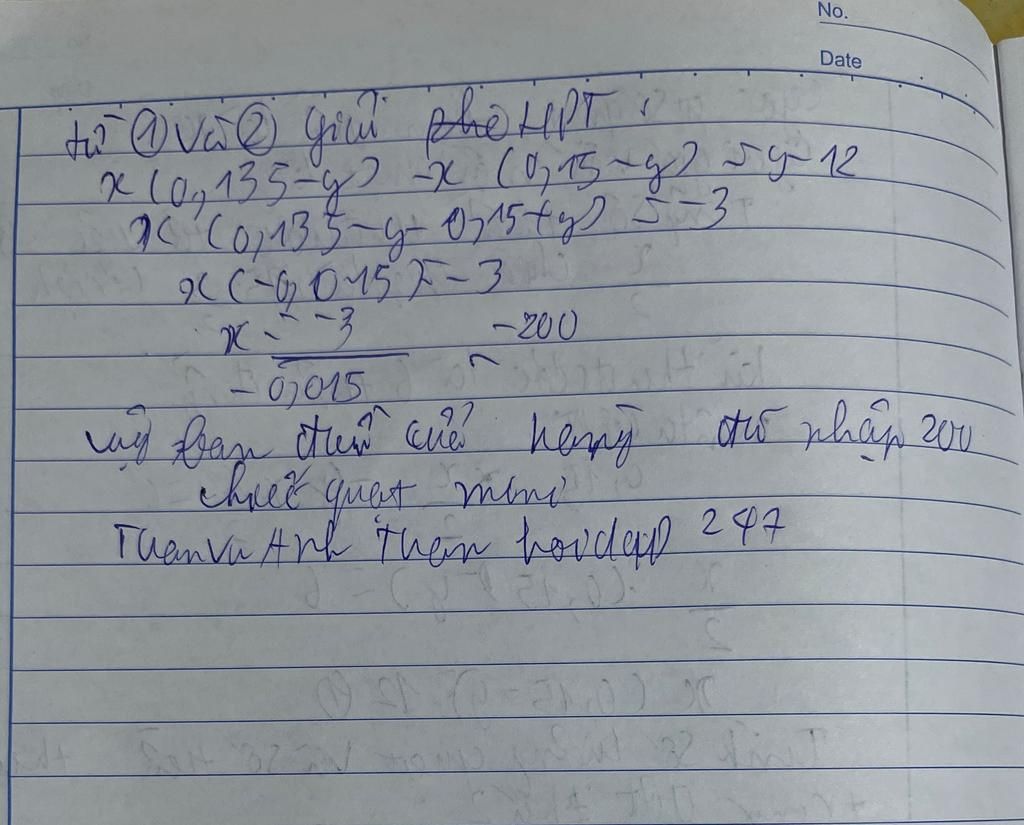 No.
Date
từ ① và ② giải HPT:
x (0,135-y) -x (0,15-y) = 9-12
x (0,135-y-0,15+y) = -3
x (-0,015) = -3
x = -3 = 200
-0,015
vậy ban đầu cửa hàng đã nhập 200
chiếc quạt mini
Tuấn Vũ Anh Tuấn hoidap 247